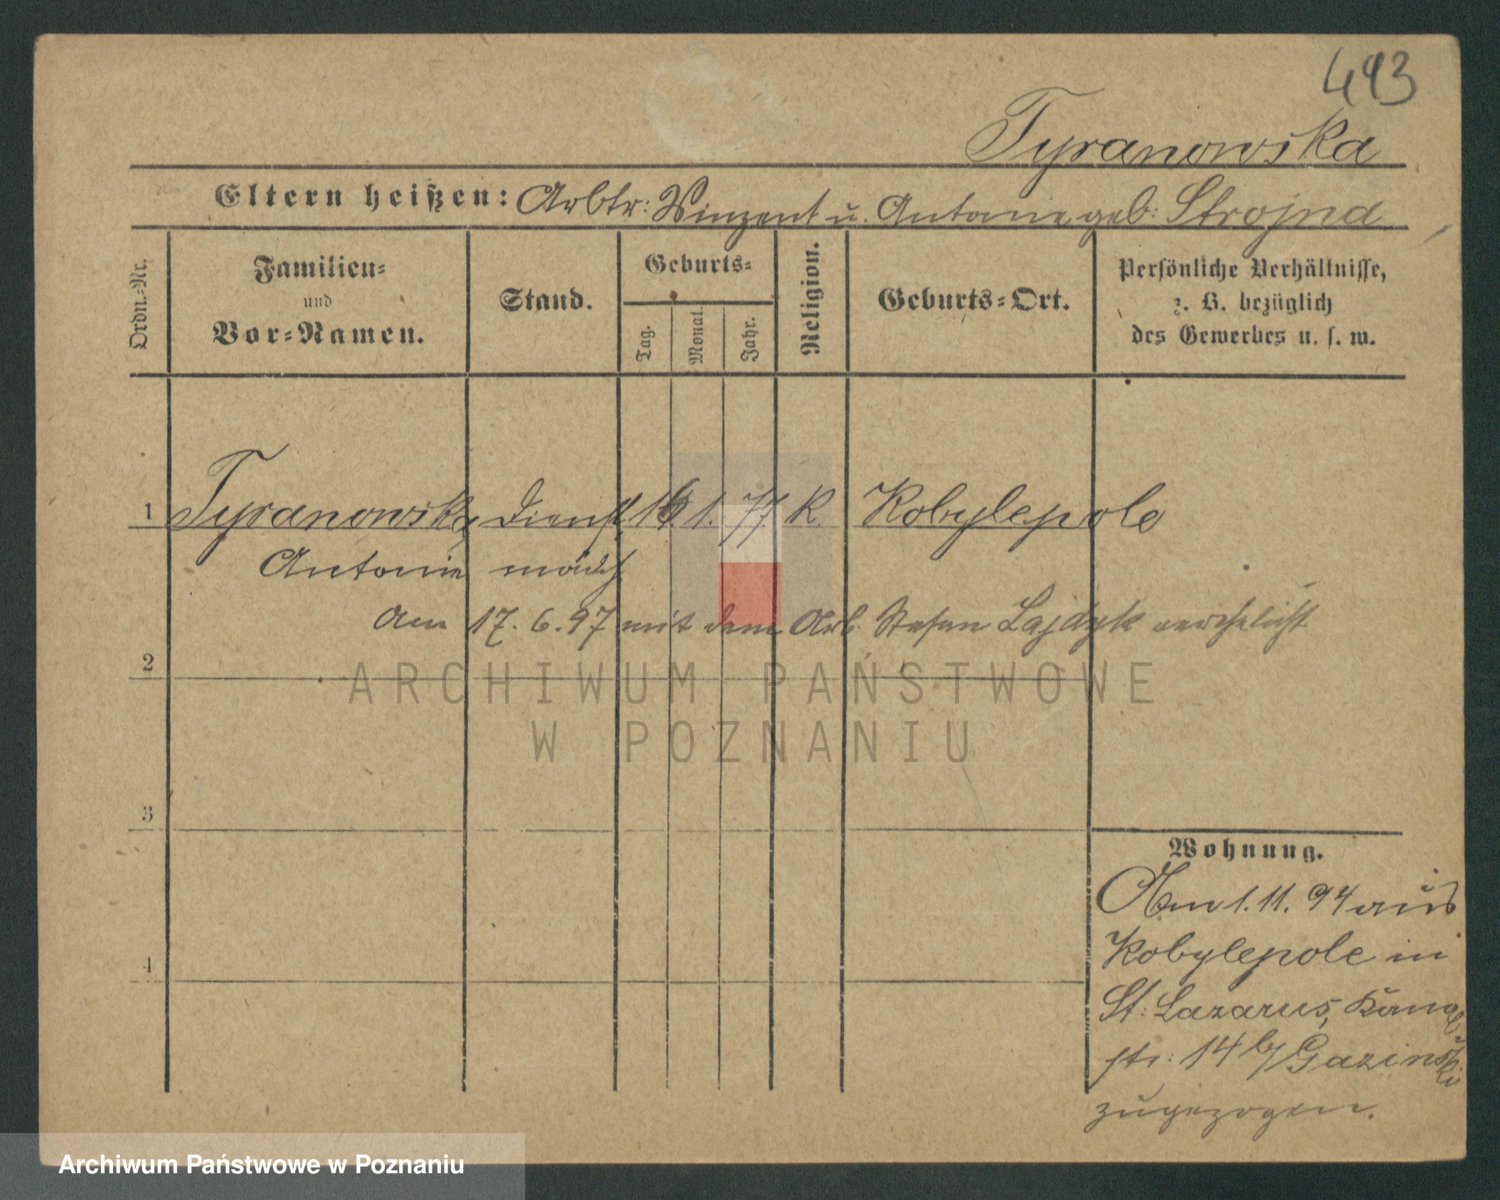 493
Tyranowska
Eltern heißen: Arbtr: Winzent u. Antonie geb: Strojna
Ordn.-Nr.
Familien-
und
Vor-Namen.
Stand.
Geburts-
Tag.
Monat.
Jahr.
Religion.
Geburts-Ort.
Persönliche Verhältnisse,
z. B. bezüglich
des Gewerbes u. s. w.
1 Tyranowska Dienst 16 1. 77 K. Kobylepole
Antonie mädch
Am 17. 6. 97 mit dem Arb. Stefan Lajdyk verehelicht
2
ARCHIWUM PAŃSTWOWE
W POZNANIU
3
Wohnung.
Am 1. 11. 94 aus
Kobylepole in
4
St: Lazarus,
str: 14 b/ Gazinski
zugezogen.
Archiwum Państwowe w Poznaniu